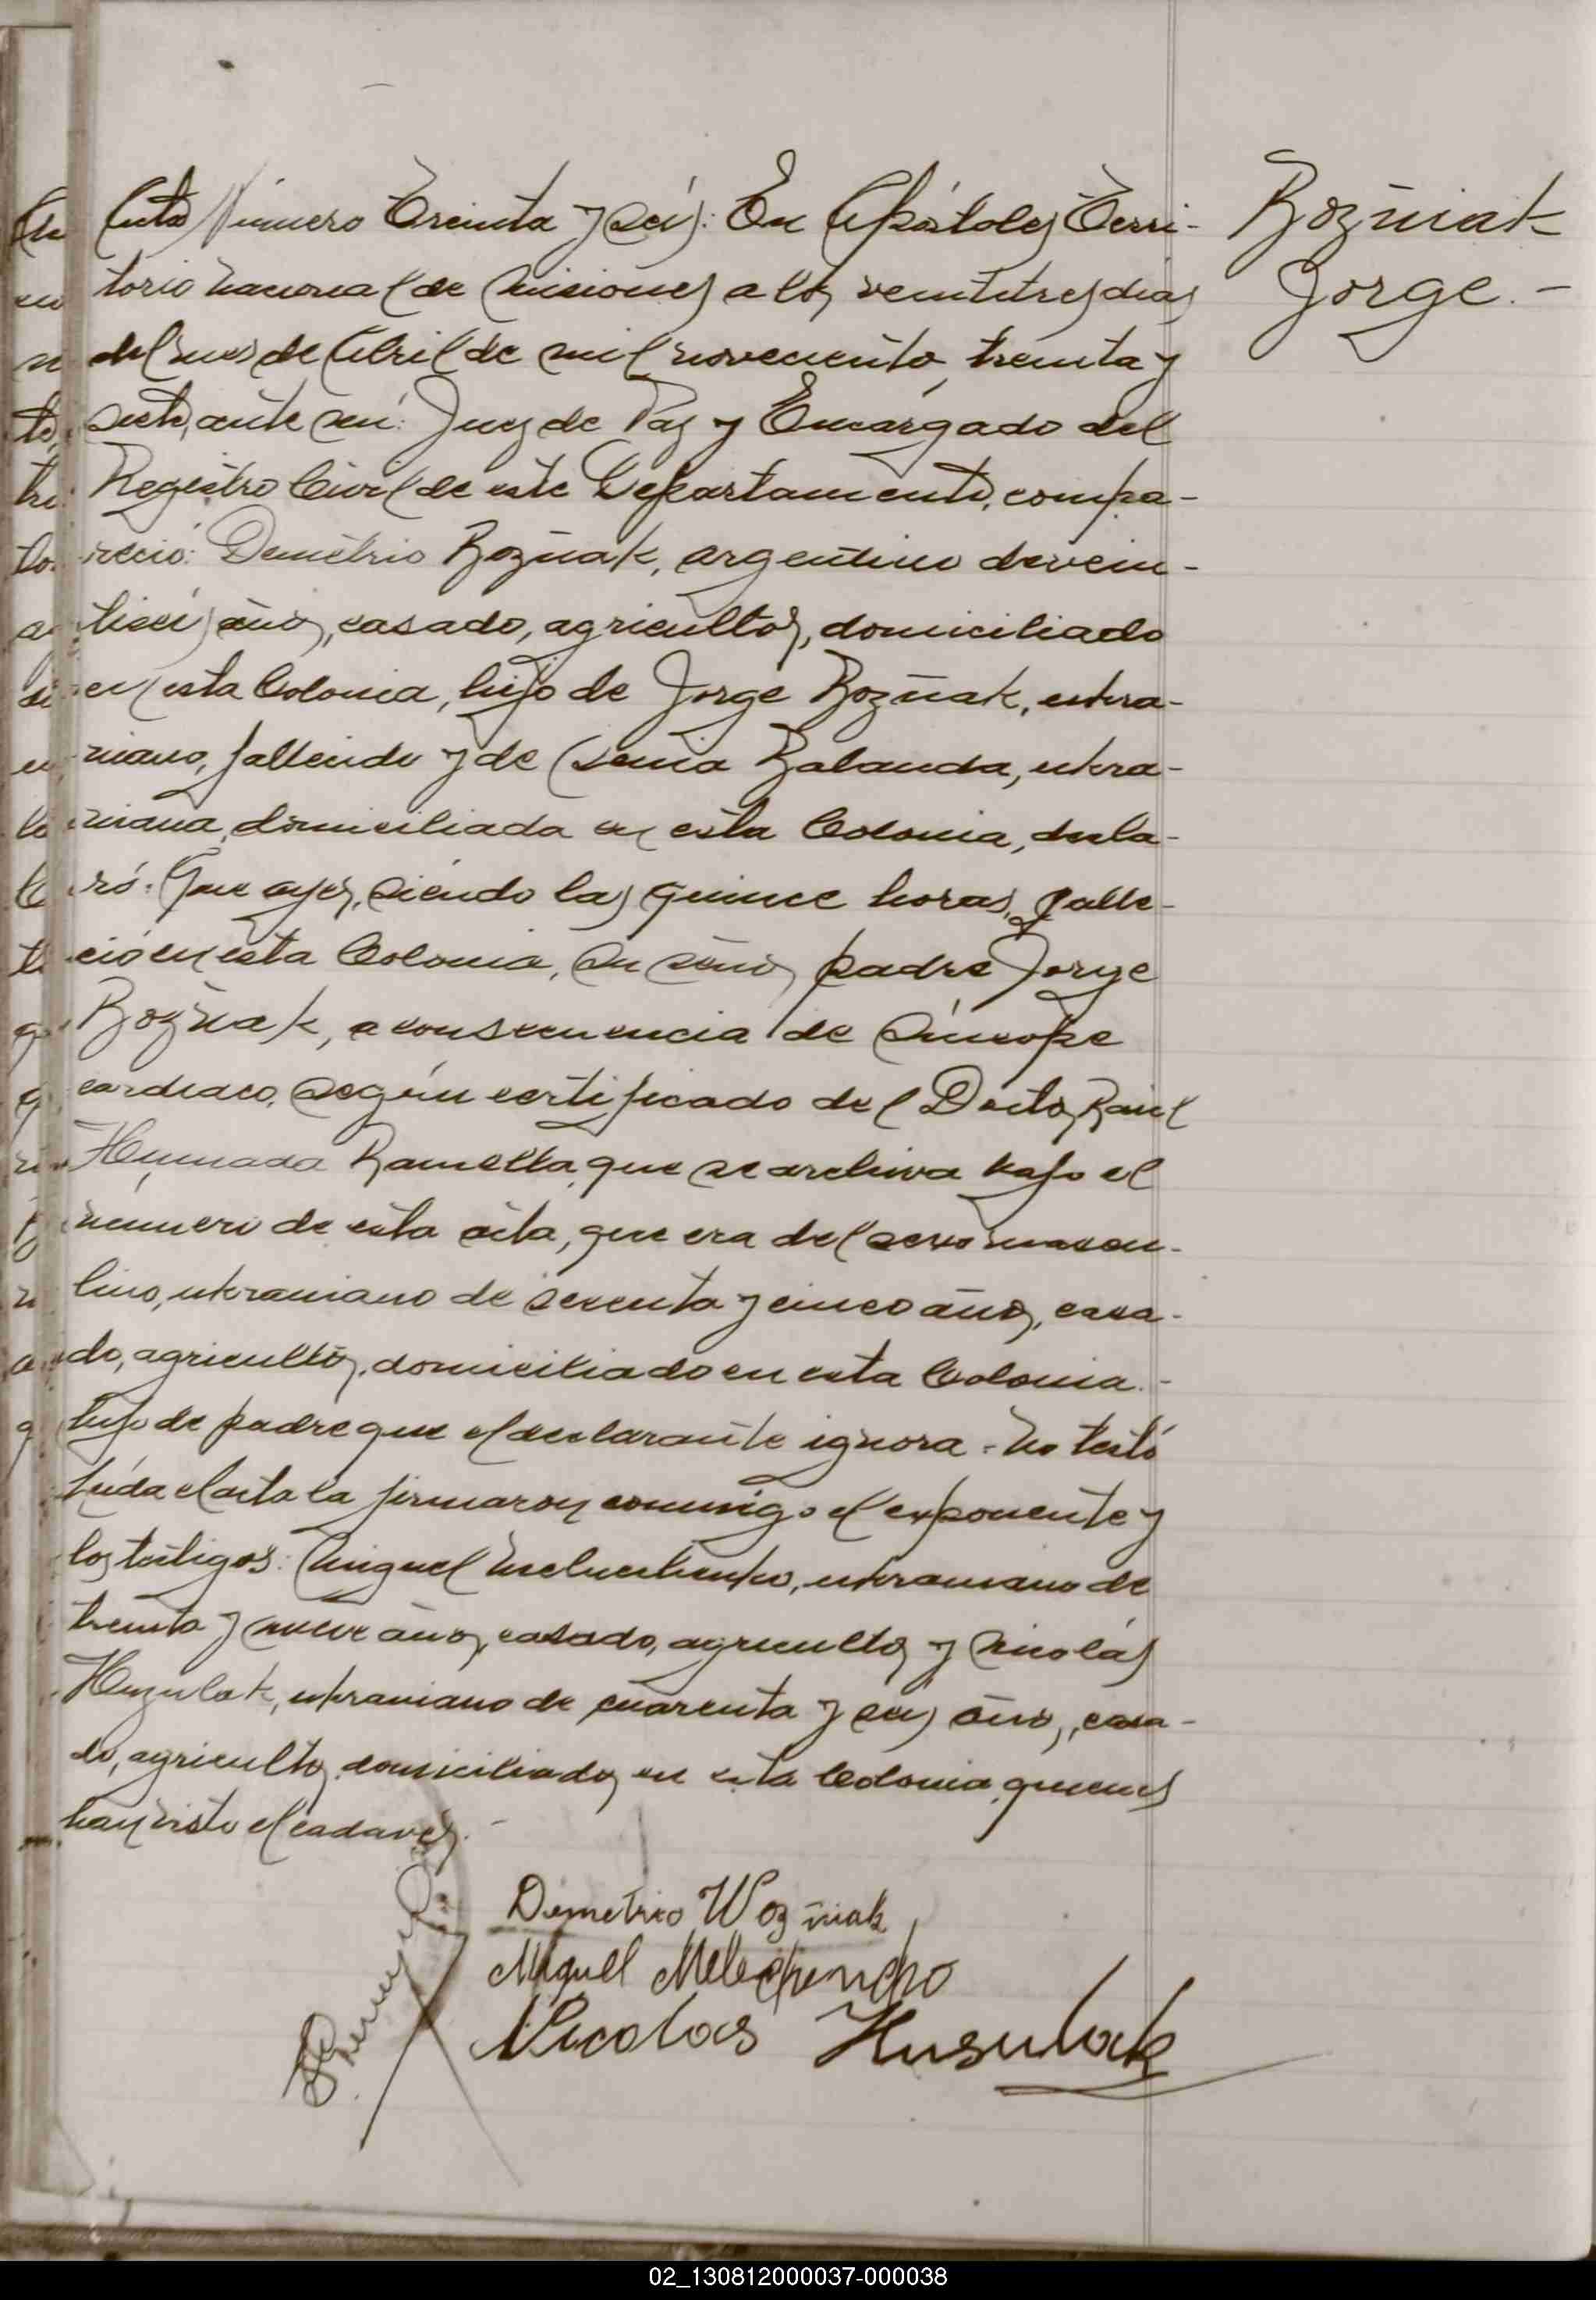 Acta Número Treinta y seis: En Apóstoles Terri-
torio nacional de Misiones a los veintitres dias
del mes de Abril de mil novecientos treinta y
siete, ante mí: Juez de Paz y Encargado del
Registro Civil de este Departamento, compa-
reció: Demetrio Bozñak, argentino de vein-
tiseis años, casado, agricultor, domiciliado
en esta Colonia, hijo de Jorge Bozñak, ukra-
niano, fallecido y de Balanda, ukra-
niana, domiciliada en esta Colonia, decla-
ró: Que ayer, siendo las quince horas, falle-
ció en esta Colonia, su padre Jorge
Bozñak, a consecuencia de síncope
cardiaco, según certificado del Doctor Raúl
Ramella, que se archiva bajo el
número de esta acta, que era del sexo mascu-
lino, ukraniano de sesenta y cinco años, casa-
do, agricultor, domiciliado en esta Colonia.-
hijo de padre que el declarante ignora. No testó
Leída el acta la firmaron conmigo el exponente y
los testigos: Miguel ukraniano de
treinta y nueve años, casado, agricultor y Nicolás
Huzulak, ukraniano de cuarenta y seis años, casa-
do, agricultor, domiciliados en esta Colonia, quienes
han visto el cadaver.-
Demetrio Wozñiak
Miguel Melechencho
Nicolas Husulak
Bozñiak
Jorge.-
02_130812000037-000038